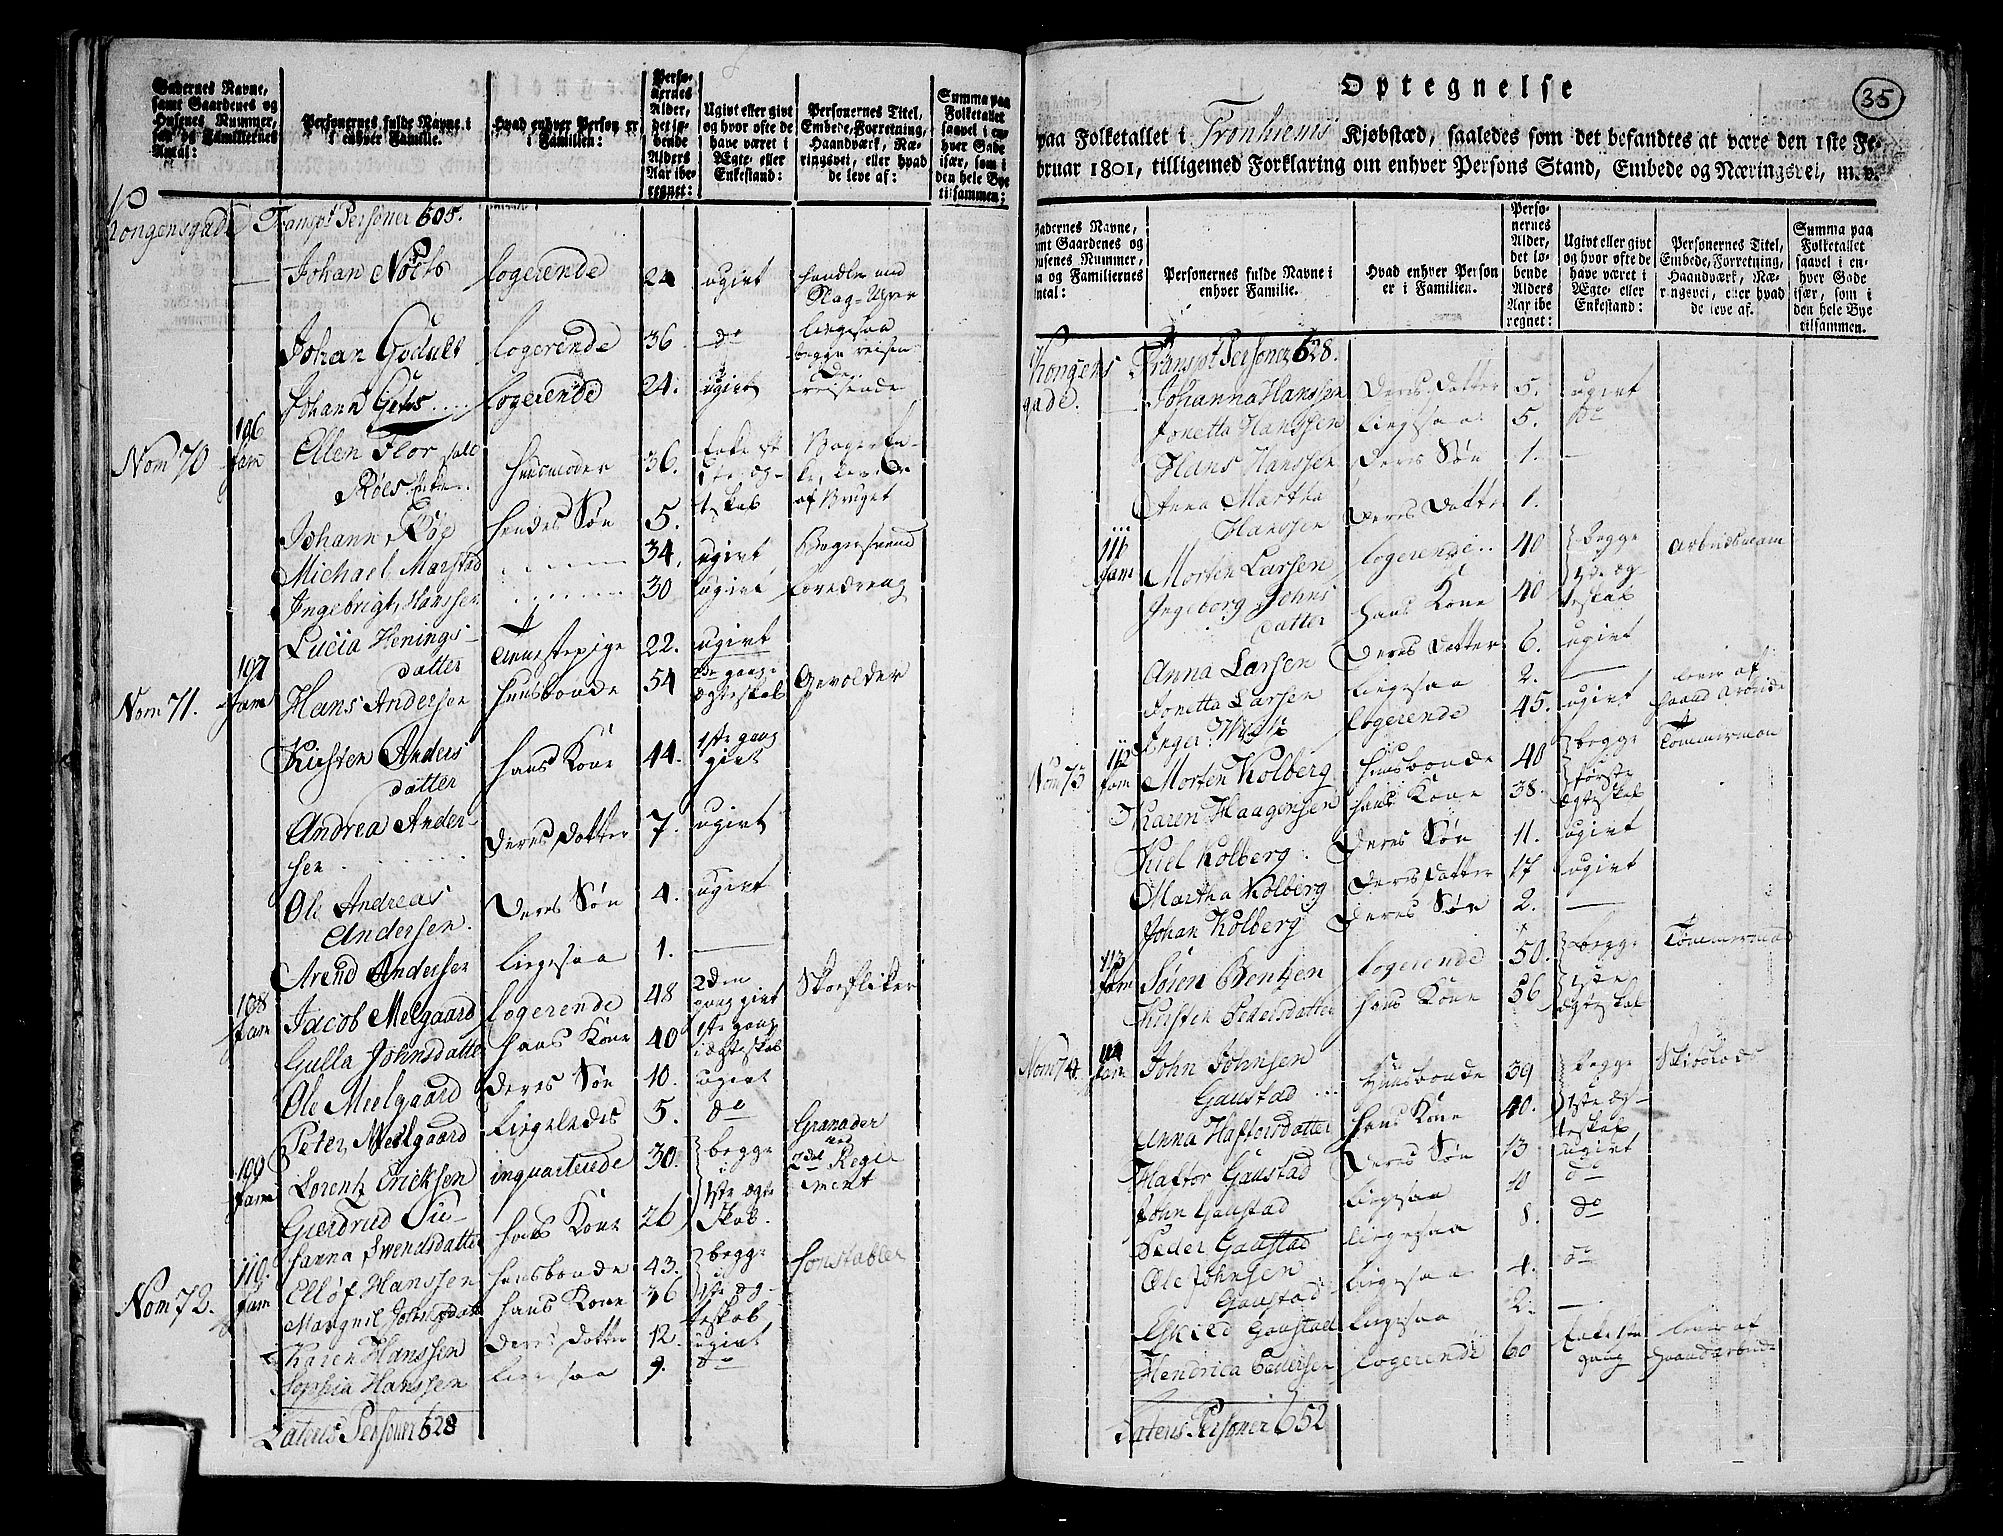 Gadernes Navne,
samt Gaardenes og
Husenes Nummer,
saa og Familiernes
Antal:
Personernes fulde Navne i
enhver Familie.
Hvad enhver Person er
i Familien:
Perso-
nernes
Alder,
det lø-
bende
Alders
Aar ibe-
regnet:
Ugivt eller givt
og hvor ofte de
have været i
Ægte- eller
Enkestand:
Personernes Titel,
Embede, Forretning,
Haandværk, Næ-
ringsvei, eller hvad
de leve af:
Summa paa
Folketallet
saavel i en-
hver Gade
især, som i
den hele Bye
tilsammen:
Kongensgade Transpt Personer 605.
Johan Nolts logerende 24 ugivt handler med
Slag-Uhre
Johan Godult logerende 36 do ligesaa
begge reisen-
de
Johan Gets logerende 24. ugivt reisende
Nom 70 106 fam Ellen Flor sal.
Röes Enke husmoder 36. Enke
af Bruget
Johann Röe hendes Søn 5.
Michael Marstad 34. ugivt Bagersvend
Ingebrigt Hanssen 30 ugivt Læredreng
Lucia Henings-
datter Tienestepige 22. ugivt
Nom 71. 107 fam Hans Andersen huusbonde 54 2de gang
ægteskab Gevolder
Kirsten Anders
datter hans Kone 44. 1ste gang
givt
Andrea Ander-
sen deres Datter 7. ugivt
Ole Andreas
Andersen deres Søn 4. ugivt
Arend Andersen ligesaa 1. —
108 fam Jacob Melgaard logerende 48 2den
gang givt Skoeflikker
Gulla Johnsdatter hans Kone 40 1ste gang
i ægteskab
Ole Melgaard deres Søn 10. ugivt
Peter Melgaard ligeledes 5. do
109 fam Lorentz Ericksen inquarterede 30. begge
i Granader
ved
2det Regi-
ment
Giærdrud Su-
sanna Svendsdatter hans Kone 26 1ste ægte
skab.
Nom 72. 110. fam Elløf Hanssen huusbonde 43. begge
i Constabler
Margrit Johnsdatter hans Kone 36 1ste æg-
teskab
Karen Hanssen deres Datter 12. ugivt
Sophia Hanssen ligesaa 9. do
Lateris Personer 628
35
Optegnelse
paa Folketallet i Tronhiems Kjøbstæd, saaledes som det befandtes at være den 1ste Fe-
bruar 1801, tilligemed Forklaring om enhver Persons Stand, Embede og Næringsvei, m. v.
Gadernes Navne,
samt Gaardenes og
Husenes Nummer,
saa og Familiernes
Antal:
Personernes fulde Navne i
enhver Familie.
Hvad enhver Person
er i Familien.
Perso-
nernes
Alder,
det lø-
bende
Alders
Aar ibe-
regnet:
Ugivt eller givt
og hvor ofte de
have været i
Ægte- eller
Enkestand:
Personernes Titel,
Embede, Forretning,
Haandværk, Næ-
ringsvei, eller hvad
de leve af.
Summa paa
Folketallet
saavel i en-
hver Gade
især, som i
den hele Bye
tilsammen.
Kongens
gade. Transpt Personer 628.
Johanna Hanssen deres Datter 5. ugivt
Jonetta Hanssen ligesaa 5. do
Hans Hanssen deres Søn 1. —
Anna Martha
Hanssen deres Datter 1.
111 fam Morten Larsen logerende 40 begge Arbeidsmann
Ingeborg Johns
datter hans Kone 40 1ste æg-
teskab
Anna Larsen deres Datter 6. ugivt
Jonetta Larsen ligesaa 2. —
Inger logerende 45. ugivt lever af
haand Arbeide
Nom 73 112 fam Morten Kolberg huusbonde 40 begge
i Tømmermand
Karen Haagensen hans Kone 38. første
ægteskab
Kiel Kolberg deres Søn 11. ugivt
Martha Kolberg deres Datter 17 ugivt
Johan Kolberg deres Søn 2. —
113 fam Søren Bentzen logerende 50. begge
i Tømmermand
Kirsten Pedersdatter hans Kone 56 1ste
ægteskab
Nom 74. 114 fam John Johnsen
Gaustad huusbonde 39 begge
i
Anna Haftorsdatter hans Kone 40. 1ste æg-
teskab
Haftor Gaustad deres Søn 13 ugivt
John Gaustad ligesaa 10 do
Peder Gaustad ligesaa 8. do
Ole Johnsen
Gaustad ligesaa 4. do
Eskild Gaustad ligesaa 2. —
Hendrica Pedersen logerende 60 Enke 1ste
gang lever af
haandarbeide
Lateris Personer 652